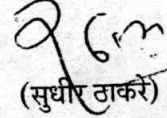 (सुधीर ठाकरे)